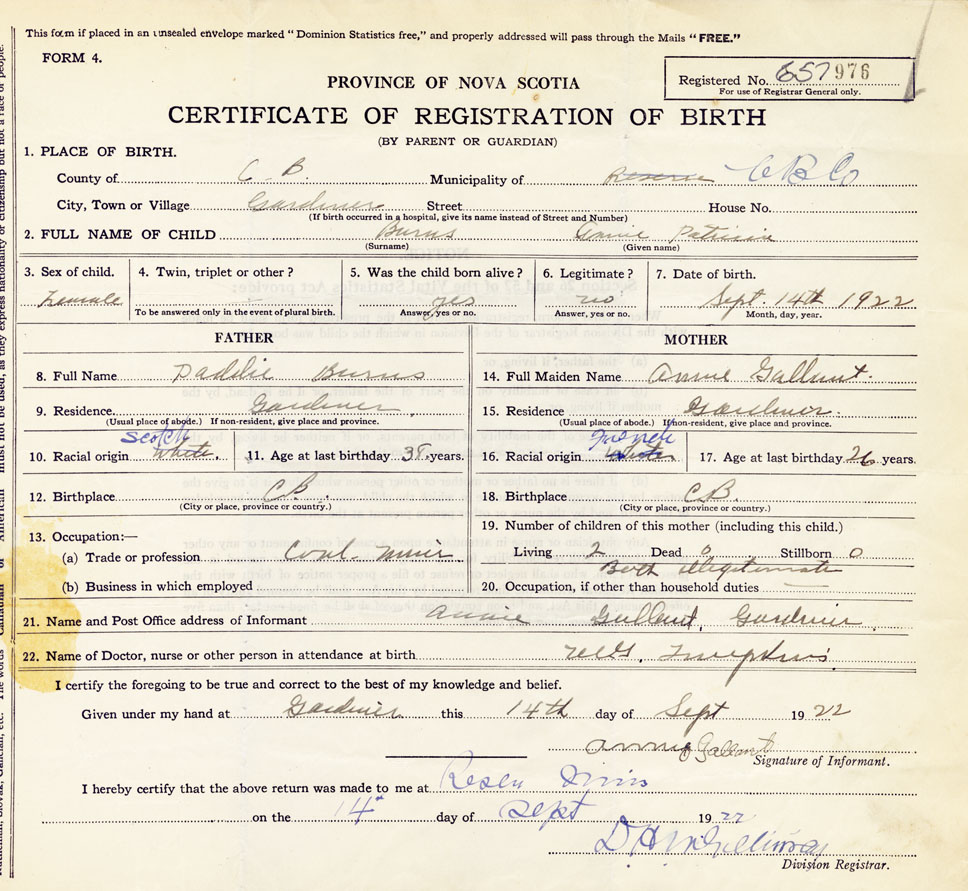 This form if placed in an unsealed envelope marked "Dominion Statistics free," and properly addressed will pass through the Mails "FREE."
FORM 4.
Registered No. 657976
For use of Registrar General only.
PROVINCE OF NOVA SCOTIA
CERTIFICATE OF REGISTRATION OF BIRTH
(BY PARENT OR GUARDIAN)
1. PLACE OF BIRTH.
County of C. B. Municipality of Reserve C B Co
City, Town or Village Gardiner Street House No.
(If birth occurred in a hospital, give its name instead of Street and Number)
2. FULL NAME OF CHILD Burns Annie Patricia
(Surname) (Given name)
3. Sex of child. 4. Twin, triplet or other? 5. Was the child born alive? 6. Legitimate? 7. Date of birth.
Female yes no Sept. 14th 1922
To be answered only in the event of plural birth. Answer, yes or no. Answer, yes or no. Month, day, year.
FATHER MOTHER
8. Full Name Paddie Burns 14. Full Maiden Name Annie Gallant.
9. Residence. Gardiner 15. Residence Gardiner.
(Usual place of abode.) If non-resident, give place and province. (Usual place of abode.) If non-resident, give place and province.
Scotch French
10. Racial origin White. 11. Age at last birthday 38 years. 16. Racial origin White 17. Age at last birthday 26 years.
12. Birthplace C B. 18. Birthplace C B.
(City or place, province or country.) (City or place, province or country.)
13. Occupation:— 19. Number of children of this mother (including this child.)
(a) Trade or profession Coal-miner Living 2 Dead 0 Stillborn 0
Both illegitimate
(b) Business in which employed 20. Occupation, if other than household duties
21. Name and Post Office address of Informant Annie Gallant, Gardiner.
22. Name of Doctor, nurse or other person in attendance at birth
I certify the foregoing to be true and correct to the best of my knowledge and belief.
Given under my hand at Gardiner this 14th day of Sept 1922
Annie Gallant
Signature of Informant.
I hereby certify that the above return was made to me at
on the 14th day of Sept 1922
D H McGillivray
Division Registrar.